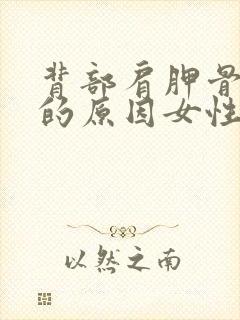 背部肩胛骨
的原因女性
以然之南